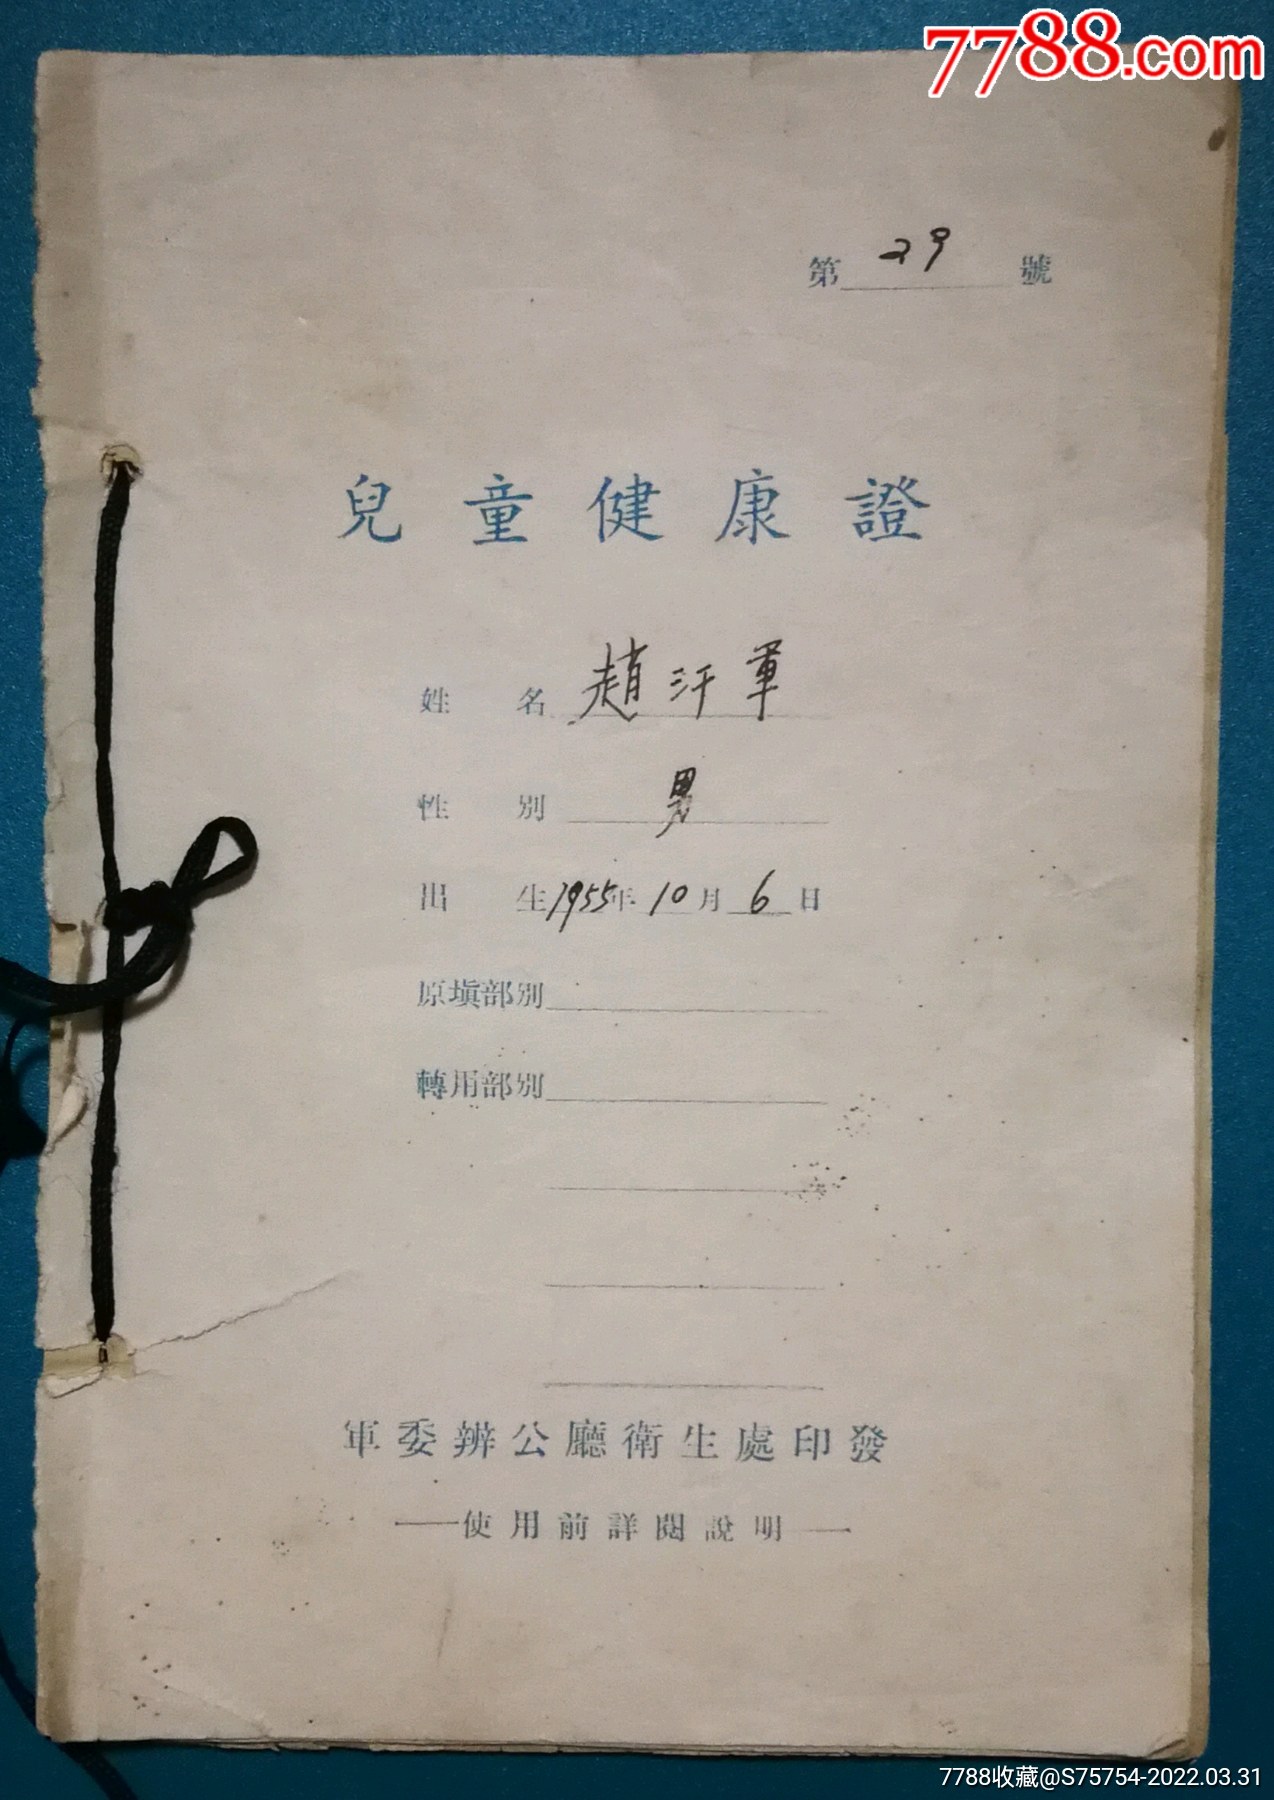 7788.com
第 29 號
兒童健康證
姓 名 趙汗軍
性 別 男
出 生 1955年 10月 6日
原填部別
轉用部別
軍委辨公廳衛生處印發
——使用前詳閱說明——
7788收藏@S75754-2022.03.31